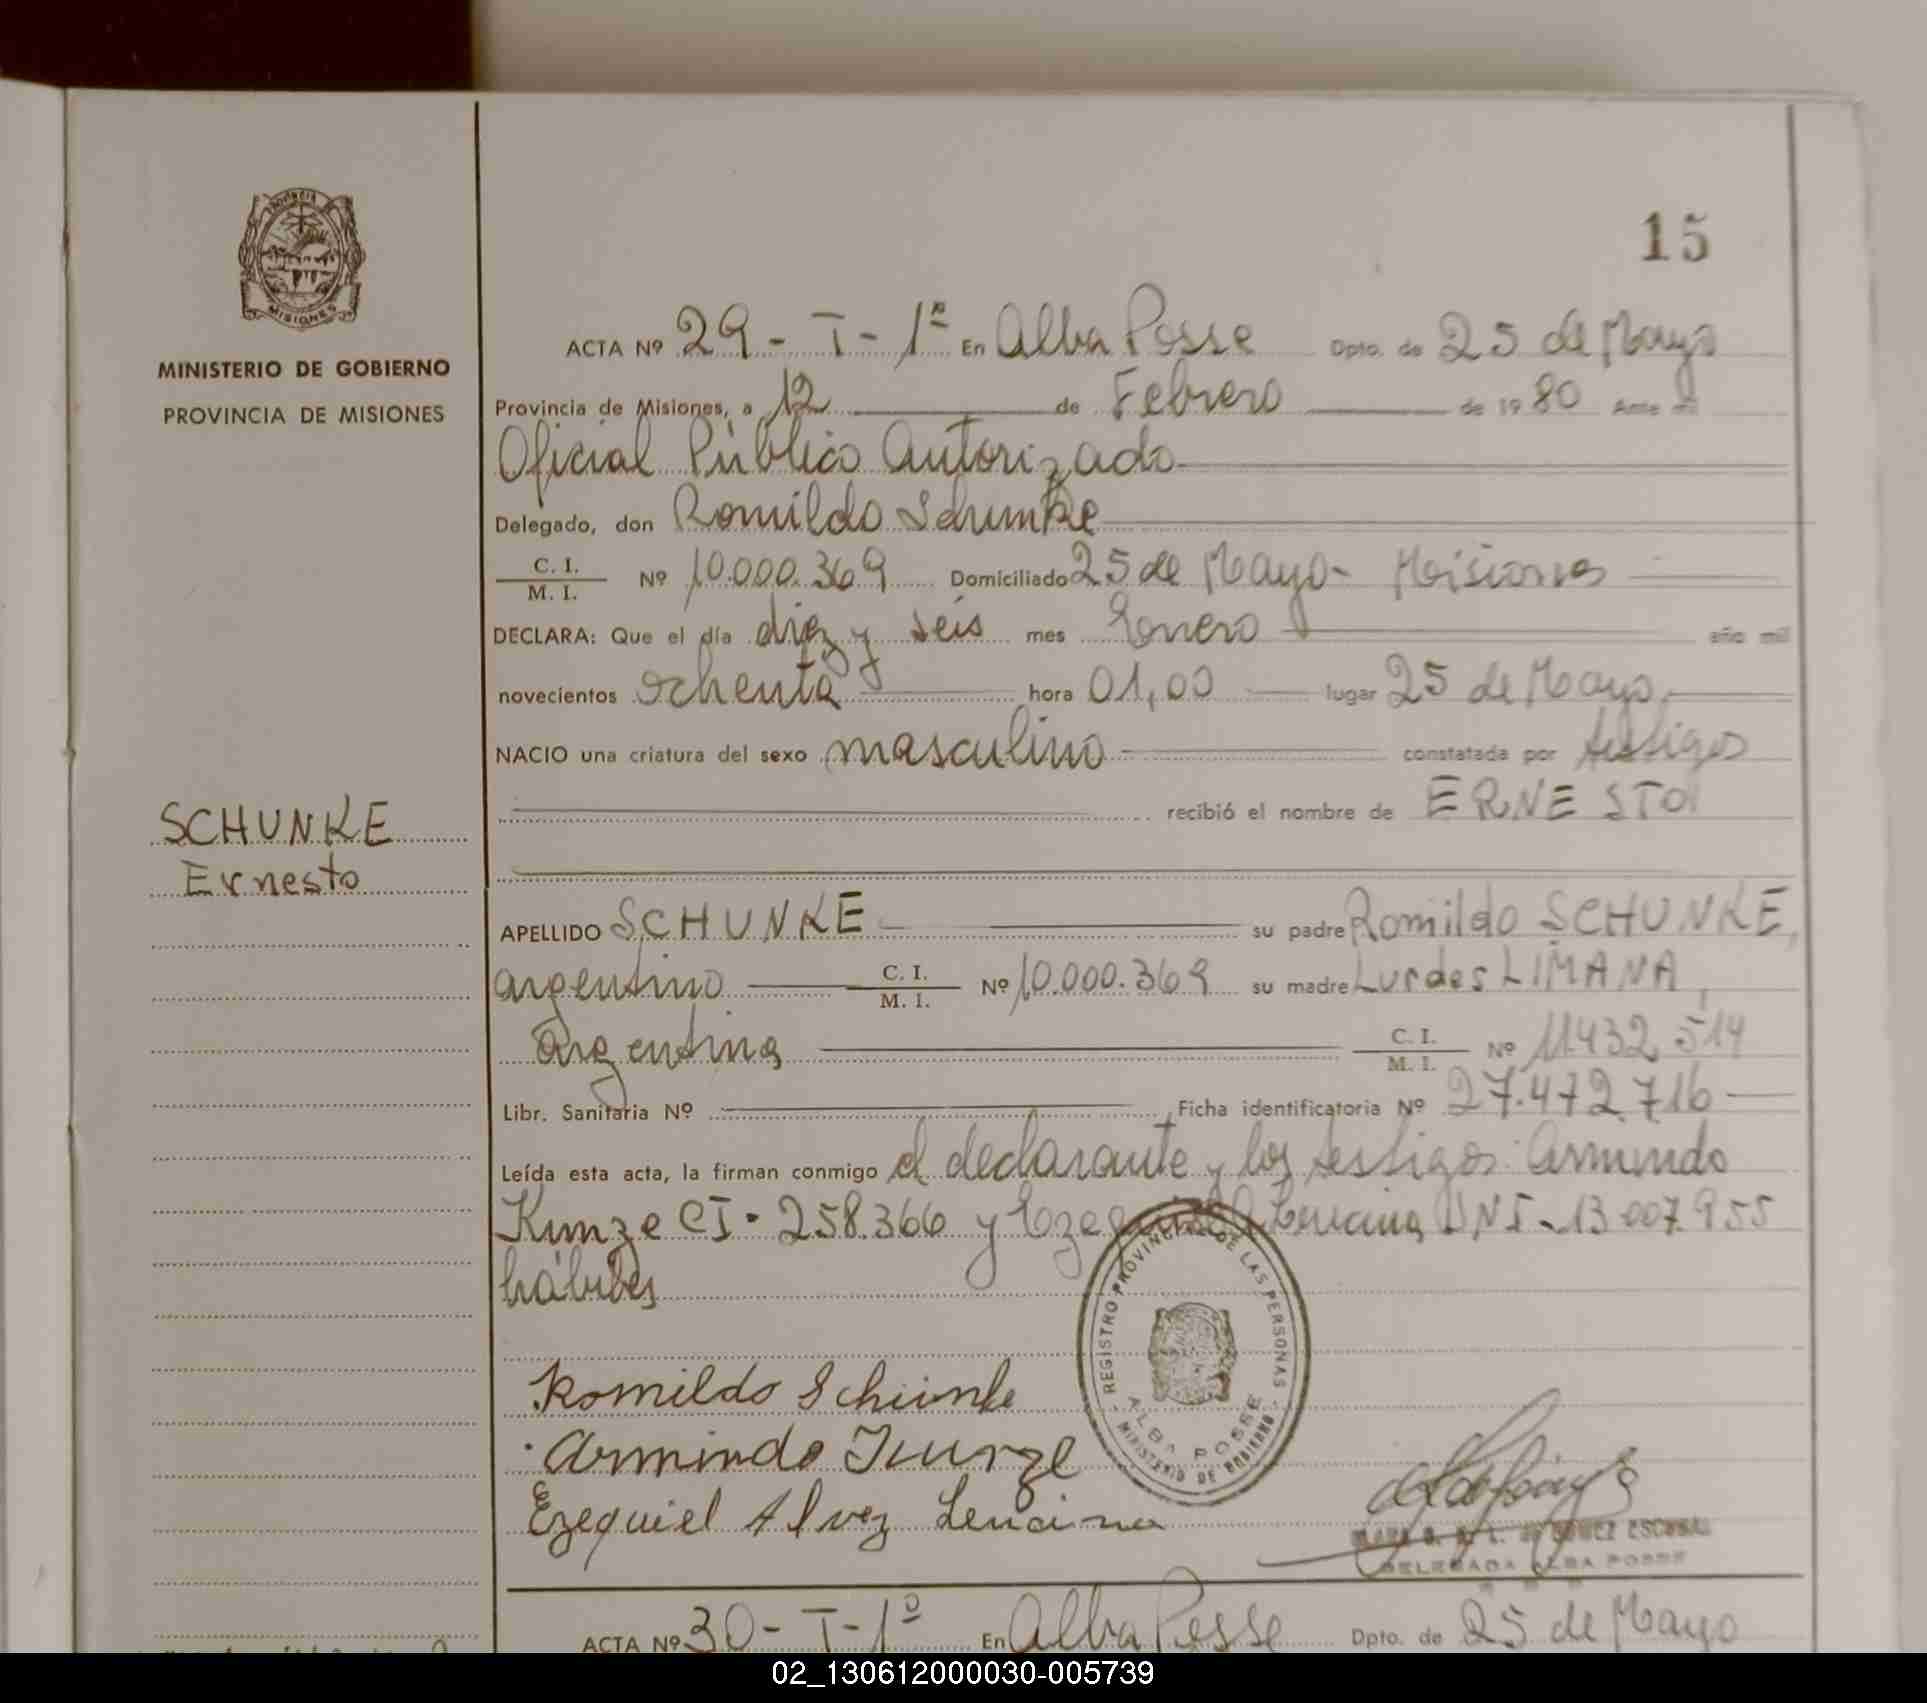 15
MINISTERIO DE GOBIERNO
PROVINCIA DE MISIONES
SCHUNKE
Ernesto
ACTA Nº 29 - T - 1ª En Alba Posse Dpto. de 25 de Mayo
Provincia de Misiones, a 12 de Febrero de 1980 Ante mí
Oficial Público Autorizado
Delegado, don Romildo Schunke
C. I. / M. I. Nº 10.000.369 Domiciliado 25 de Mayo - Misiones
DECLARA: Que el día diez y seis mes Enero año mil
novecientos ochenta hora 01,00 lugar 25 de Mayo
NACIO una criatura del sexo masculino constatada por testigos
recibió el nombre de ERNESTO
APELLIDO SCHUNKE su padre Romildo SCHUNKE,
argentino C. I. / M. I. Nº 10.000.369 su madre Lurdes LIMANA,
argentina C. I. / M. I. Nº 11432514
Libr. Sanitaria Nº Ficha identificatoria Nº 27.472.716
Leída esta acta, la firman conmigo el declarante y los testigos: Armindo
Kunze CI. 258.366 y Ezequiel A. Lencina DNI - 13.007.955
hábiles
Romildo Schunke
Armindo Kunze
Ezequiel Alvez Lencina
REGISTRO PROVINCIAL DE LAS PERSONAS
ALBA POSSE
MINISTERIO DE GOBIERNO
DELEGADA ALBA POSSE
ACTA Nº 30 - T - 1º En Alba Posse Dpto. de 25 de Mayo
02_130612000030-005739